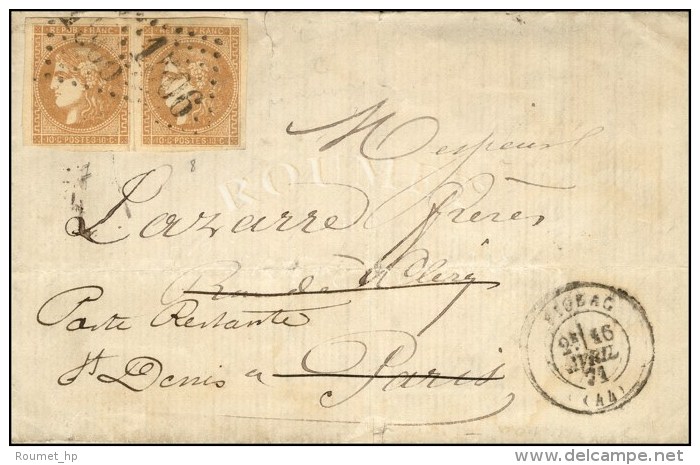 REPUB. FRANC.
REPUB. FRANC.
10·C·POSTES·10·C
10·C·POSTES·10·C
8
Messieurs
ROUMET
Lazarre frères
Rue de Cléry
Poste Restante
St Denis a Paris
FIGEAC
2E 16
AVRIL
71
(44)
Roumet_hp
©delcampe.net